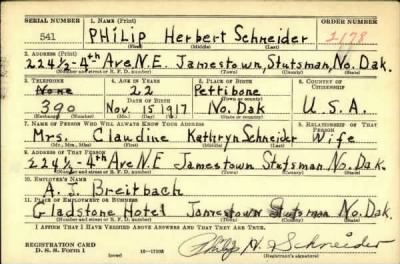 SERIAL NUMBER 1. NAME (Print) ORDER NUMBER
541 PHILIP Herbert Schneider 2178
(First) (Middle) (Last)
2. ADDRESS (Print)
224½-4th Ave N.E. Jamestown, Stutsman, No. Dak.
(Number and street or R. F. D. number) (Town) (County) (State)
3. TELEPHONE 4. AGE IN YEARS 5. PLACE OF BIRTH 6. COUNTRY OF CITIZENSHIP
None 22 Pettibone
DATE OF BIRTH (Town or county)
390 Nov. 15 1917 No. Dak U.S.A.
(Exchange) (Number) (Mo.) (Day) (Yr.) (State or country)
7. NAME OF PERSON WHO WILL ALWAYS KNOW YOUR ADDRESS 8. RELATIONSHIP OF THAT PERSON
Mrs. Claudine Kathryn Schneider Wife
(Mr., Mrs., Miss) (First) (Middle) (Last)
9. ADDRESS OF THAT PERSON
224½-4th Ave N.E Jamestown Stutsman No. Dak.
(Number and street or R. F. D. number) (Town) (County) (State)
10. EMPLOYER'S NAME
A. J. Breitbach
11. PLACE OF EMPLOYMENT OR BUSINESS
Gladstone Hotel Jamestown Stutsman No. Dak.
(Number and street or R. F. D. number) (Town) (County) (State)
I AFFIRM THAT I HAVE VERIFIED ABOVE ANSWERS AND THAT THEY ARE TRUE.
REGISTRATION CARD
D. S. S. Form 1 (over) Philip H. Schneider
(Registrant's signature)